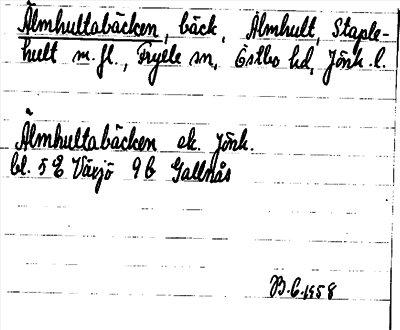 Älmhultabäcken, bäck, Älmhult, Staple-
hult m.fl., Fryele sn, Östbo hd, Jönk. l.
Älmhultabäcken ek. Jönk.
bl. 5 E Växjö 9 b Gallnås
B.G. 1958